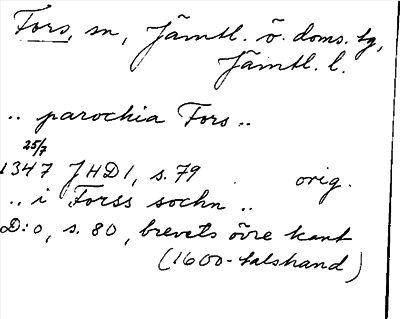 Fors, sn, Jämtl. ö. doms. tg,
Jämtl. l.
.. parochia Fors ..
25/7
1347 JHD1, s. 79 orig.
.. i Forss sochn ..
D:o, s. 80, brevets övre kant
(1600-talshand)